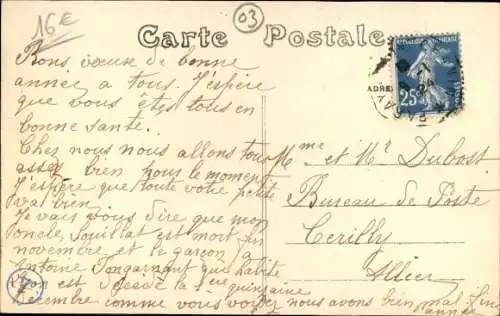 16€
03
Carte Postale
ADRE
RÉPUBLIQUE FRANÇAISE
25
Bons vœux de bonne
année a tous. J'espère
que vous êtes tous en
bonne santé.
Chez nous nous allons tous
assez bien pour le moment
J'espère que toute votre petite
va bien.
Je vais vous dire que mon
oncle Souillat est mort fin
novembre et le garçon a
Antoine qui habite
Lyon est décédé la 1ere quinzaine
Décembre comme vous voyez nous avons bien mal fini
année
Mme et Mr Dubost
Bureau de Poste
Cerilly
Allier